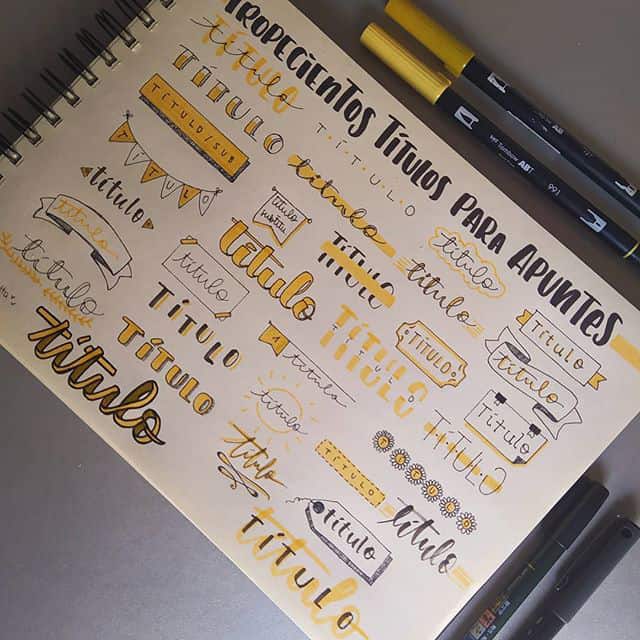 TROPECIENTOS TÍTULOS PARA APUNTES
título
TÍTULO
TÍTULO
TÍTULO/SUB
TÍTULO
título
título
título
título
T·Í·T·U·L·O
título
título
subtítulo
título
título
TÍTULO
TÍTULO
título
título
TÍTULO
TÍTULO
TÍTULO
título
título
título
TÍTULO
título
TÍTULO
Título
TÍTULO
TÍTULO
TÍTULO
título
título
título
TÍTULO
Tombow ABT
991
ABT